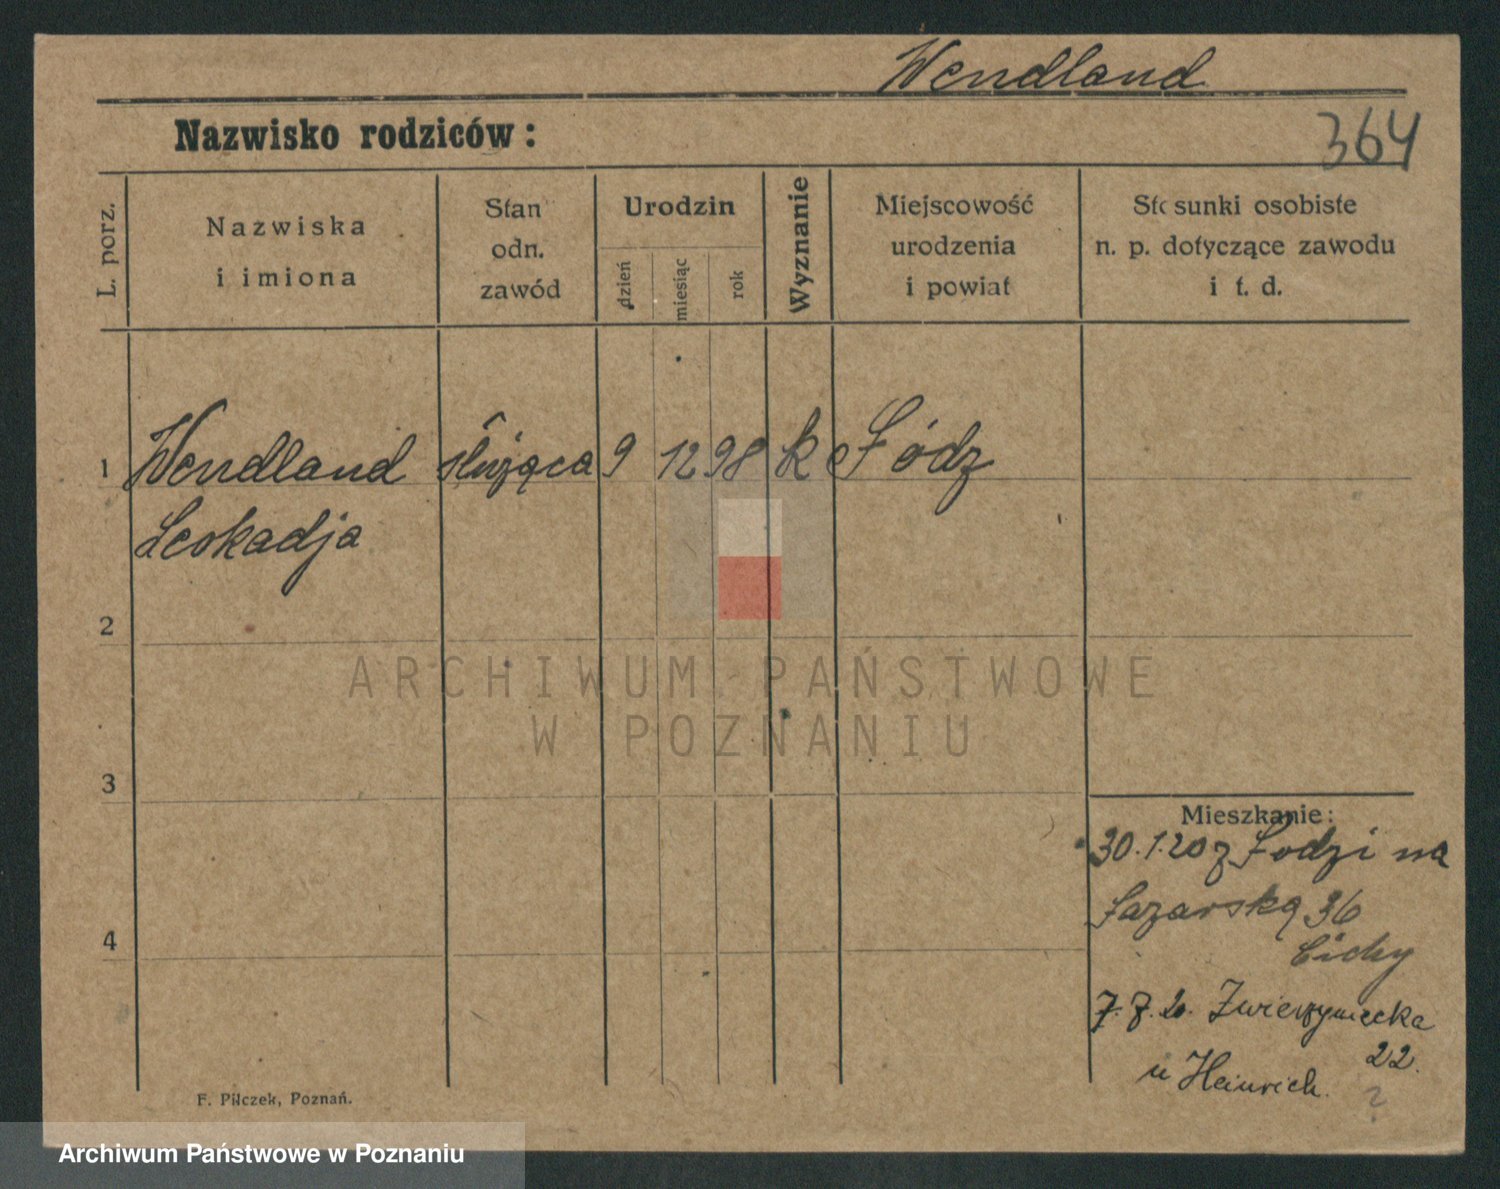 Wendland
Nazwisko rodziców:
364
L. porz.
Nazwiska
i imiona
Stan
odn.
zawód
Urodzin
dzień
miesiąc
rok
Wyznanie
Miejscowość
urodzenia
i powiat
Stosunki osobiste
n. p. dotyczące zawodu
i t. d.
1 Wendland służąca 9 12 98 k Łódz
Leokadja
2
3
4
ARCHIWUM PAŃSTWOWE
W POZNANIU
Mieszkanie:
30.1.20 z Łodzi na
Łazarską 36
Cichy
7.7.20. Zwierzyniecka
22.
u Heinrich.
?
F. Pilczek, Poznań.
Archiwum Państwowe w Poznaniu